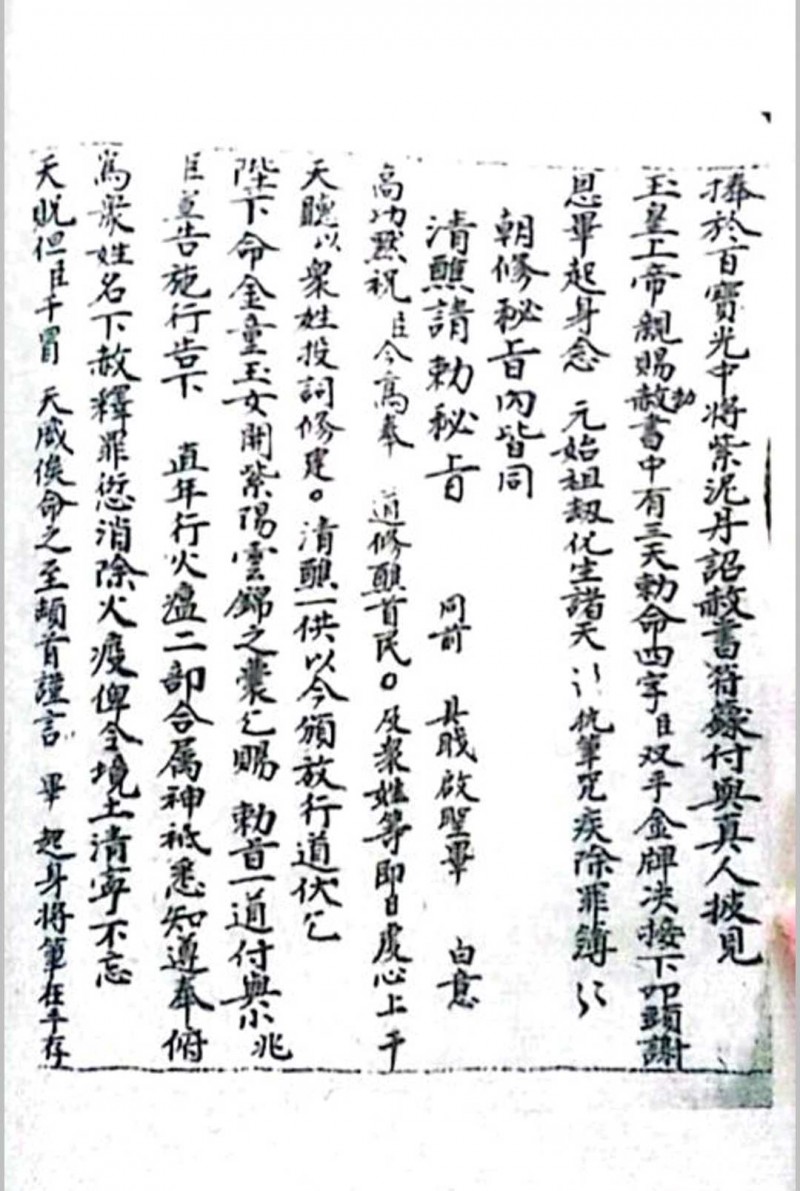 捧於百寶光中將紫泥丹詔赦書符籙付與真人披見
玉皇上帝親賜赦書中有三天勅命四字臣双手金牌决接下叩頭謝
恩畢起身念 元始祖劫化生諸天 执筆 疾除罪簿
朝修秘旨內皆同
清醮請勅秘旨 同前 具職啟聖畢 白意
高功默祝 臣今為奉 道修醮首民○及衆姓等即日虔心上干
天聽以衆姓投詞修建○清醮一供以今頒放行道伏乞
陛下命金童玉女開紫陽雲錦之囊乞賜 勅旨一道付與小兆
臣宣告施行告下 直年行火瘟二部合属神祇悉知遵奉俯
為衆姓名下赦釋罪愆消除火疫俾令境土清寧不忘
天貺但臣干冒 天威俟命之至頓首謹言 畢 起身將筆在手存